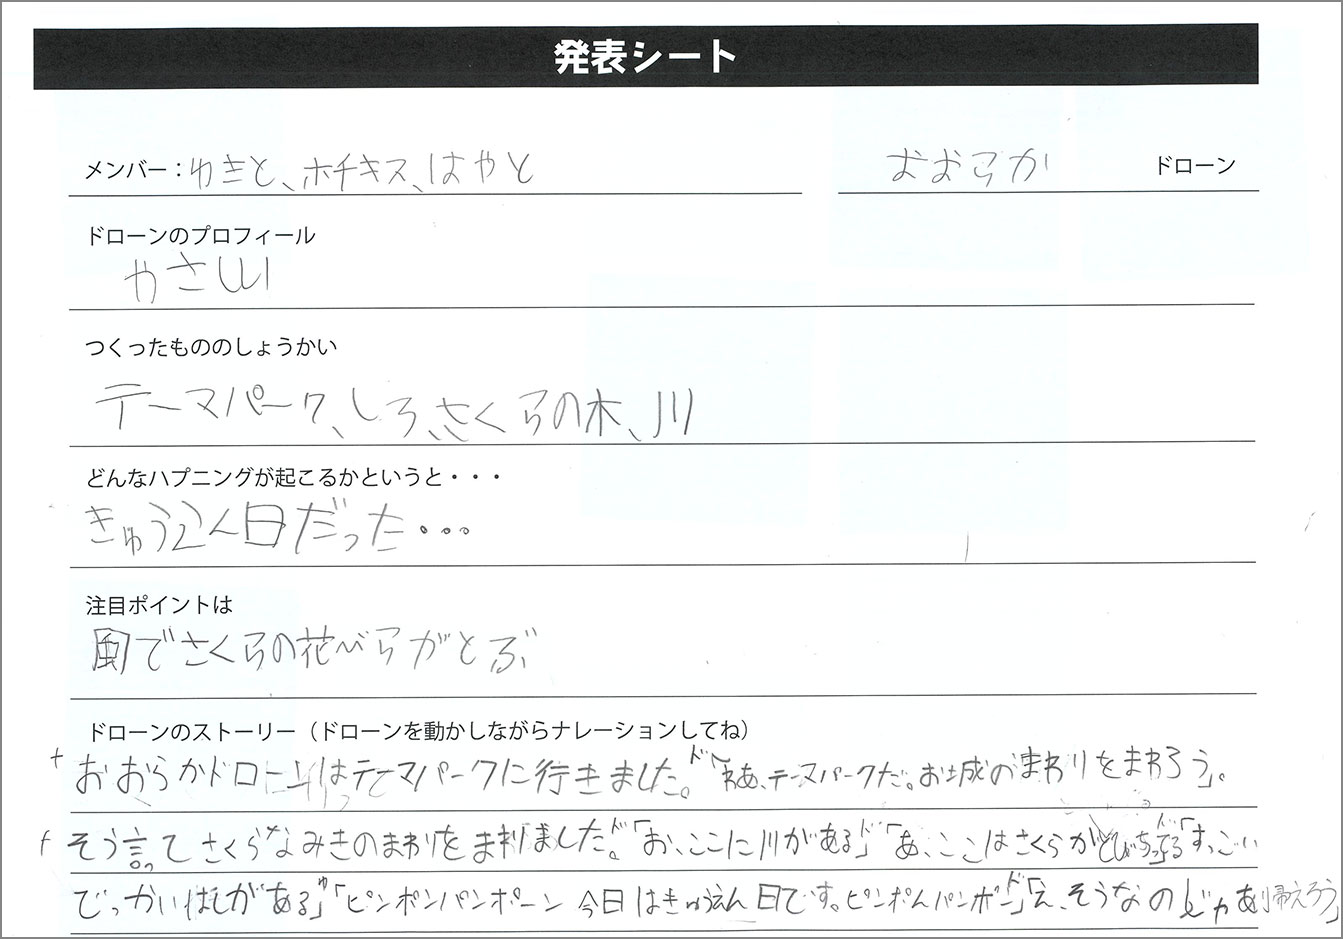 発表シート
メンバー：ゆきと、ホチキス、はやと おおらか ドローン
ドローンのプロフィール
やさしい
つくったもののしょうかい
テーマパーク、しろ、さくらの木、川
どんなハプニングが起こるかというと・・・
きゅうえん日だった・・・
注目ポイントは
風でさくらの花べらがとぶ
ドローンのストーリー（ドローンを動かしながらナレーションしてね）
おおらかドローンはテーマパークに行きました。ド「わあ、テーマパークだ。お城のまわりをまわろう」。
そう言ってさくらなみきのまわりをまわりました。ド「お、ここに川がある」ド「あ、ここはさくらがとびちってる」ド「すっごい
でっかいはしがある」ゆ「ピンポンパンポーン 今日はきゅうえん日です。ピンポんパンポーン」ド「え、そうなのじゃあ帰えろう」